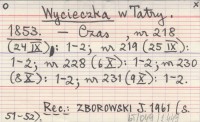 Wycieczka w Tatry.
1853. — Czas, nr 218
(24 IX): 1-2; nr 219 (25 IX):
1-2; nr 228 (6 X): 1-2; nr 230
(8 X): 1-2; nr 231 (9 X): 1-2.
Rec.: ZBOROWSKI J. 1961 (s.
51-52).